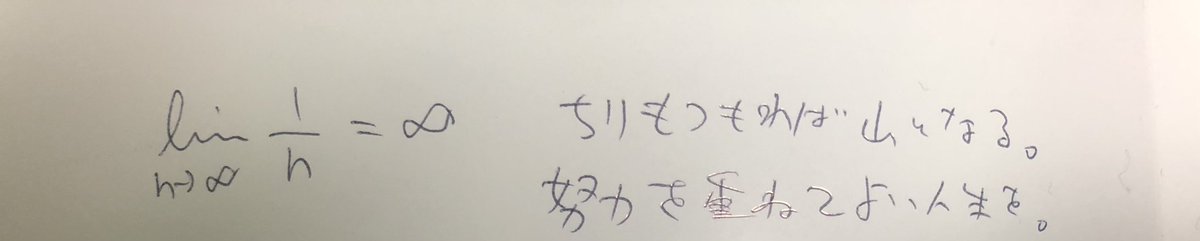 lim n→∞ 1/n = ∞
ちりもつもれば山となる。
努力を重ねてよい人生を。